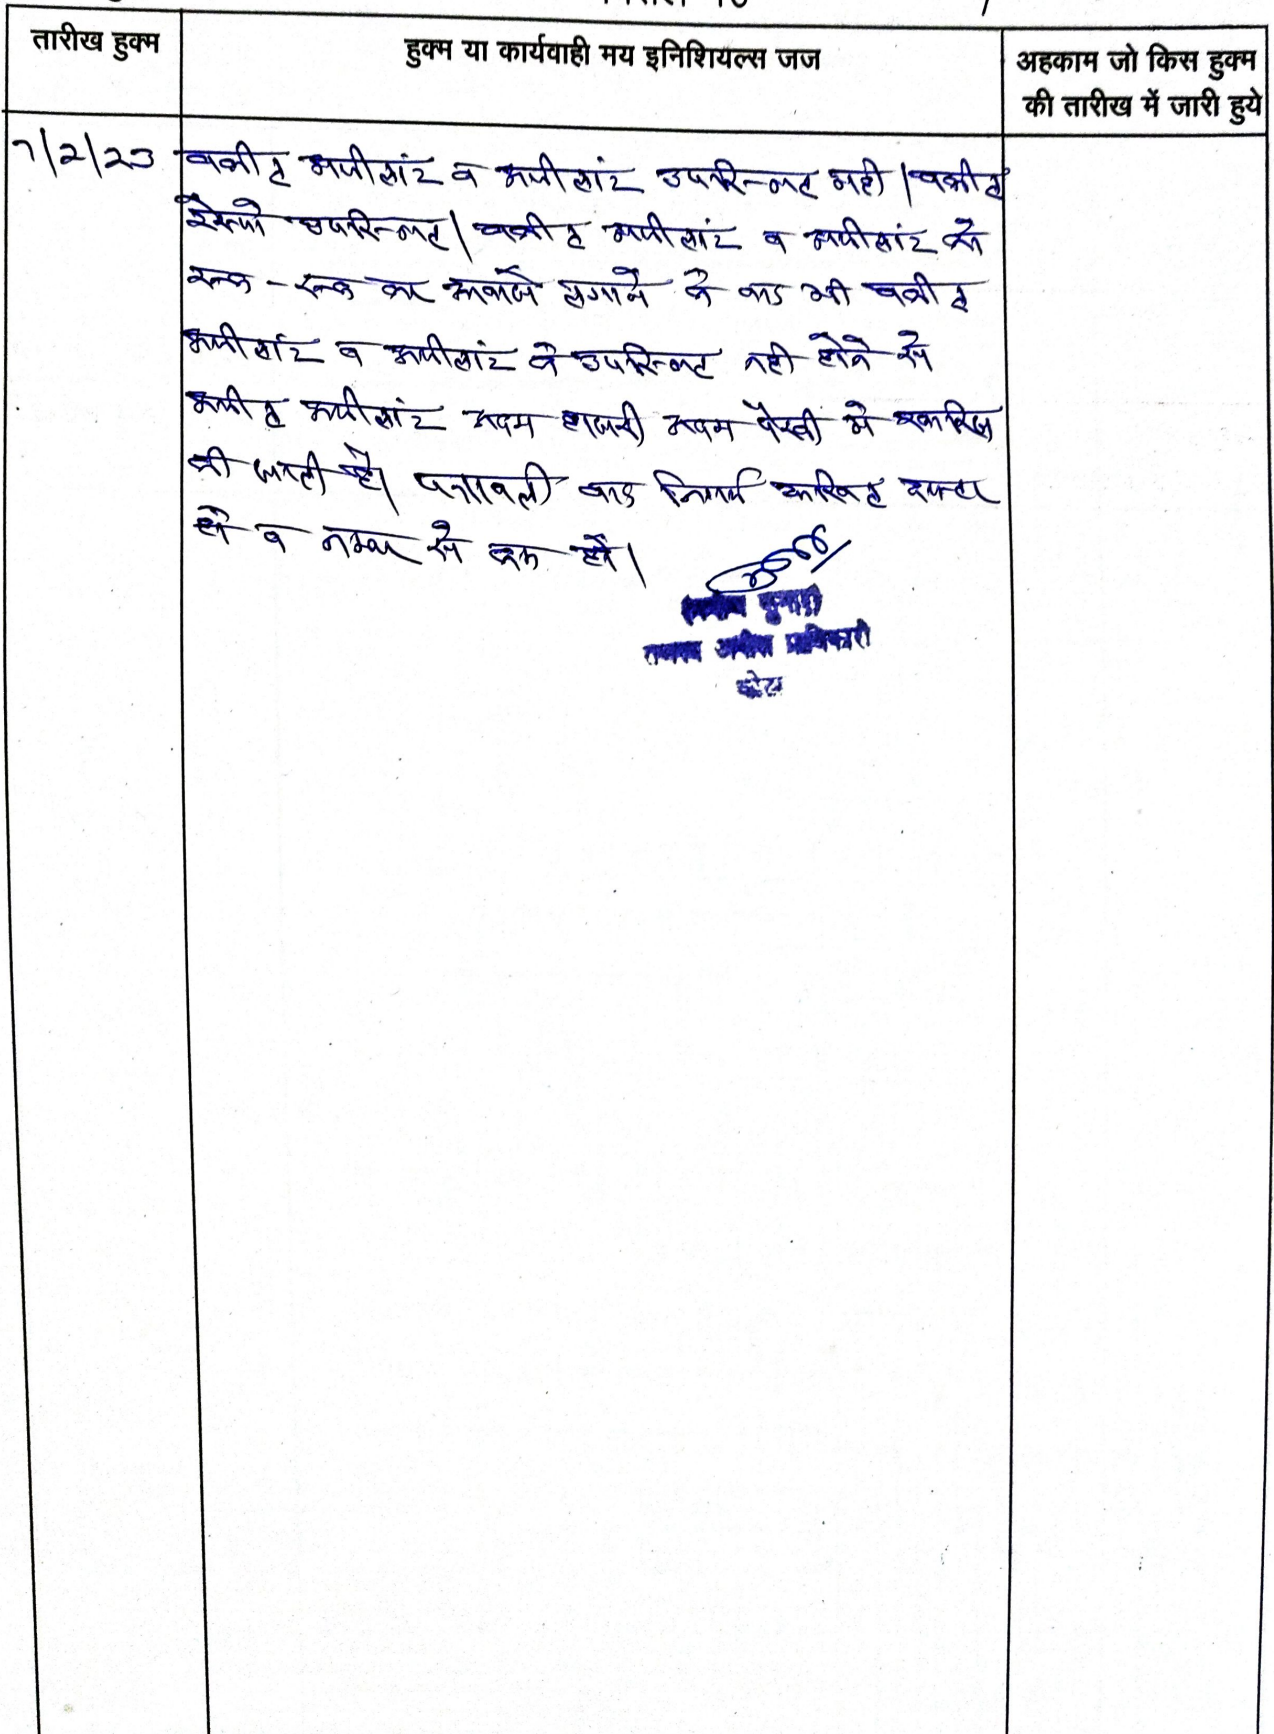 तारीख हुक्म
हुक्म या कार्यवाही मय इनिशियल्स जज
अहकाम जो किस हुक्म
की तारीख में जारी हुये
7/2/23
वकील अपीलांट व अपीलांट उपस्थित नही। वकील
रेस्पो उपस्थित। वकील अपीलांट व अपीलांट को
रूक - रूक कर आवाजे लगाने के बाद भी वकील
अपीलांट व अपीलांट के उपस्थित नही होने से
अपील अपीलांट अदम हाजरी अदम पैरवी मे खारिज
की जाती है। पत्रावली बाद निर्णय दाखिल दफ्तर
हो व नम्बर से कम हो।
अपील प्राधिकारी
कोटा